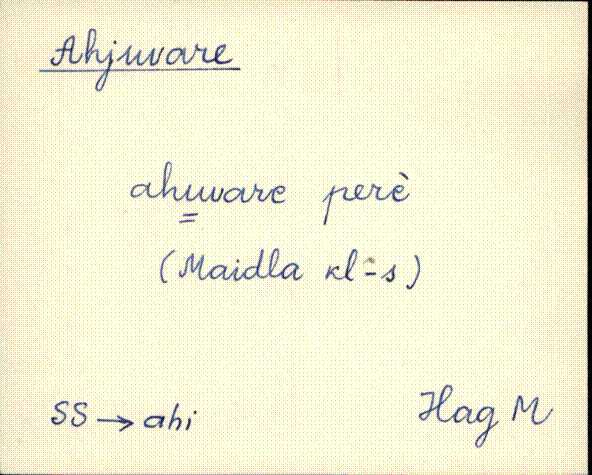 Ahjuvare
ahuvare perè
(Maidla kl-s)
SS → ahi
Hag M